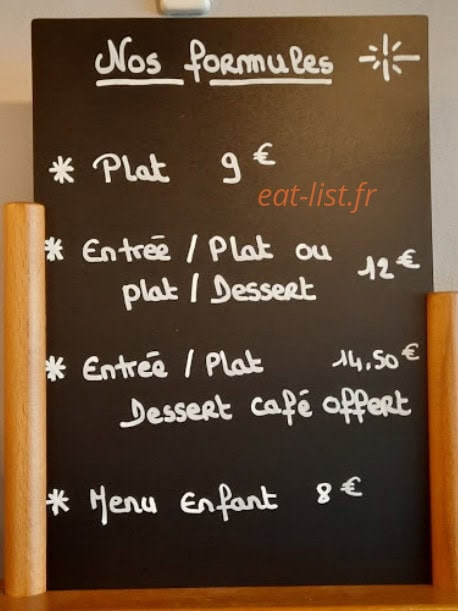 Nos formules
* Plat 9 €
eat-list.fr
* Entrée / Plat ou
plat / Dessert 12 €
* Entrée / Plat 14,50 €
Dessert café offert
* Menu Enfant 8 €